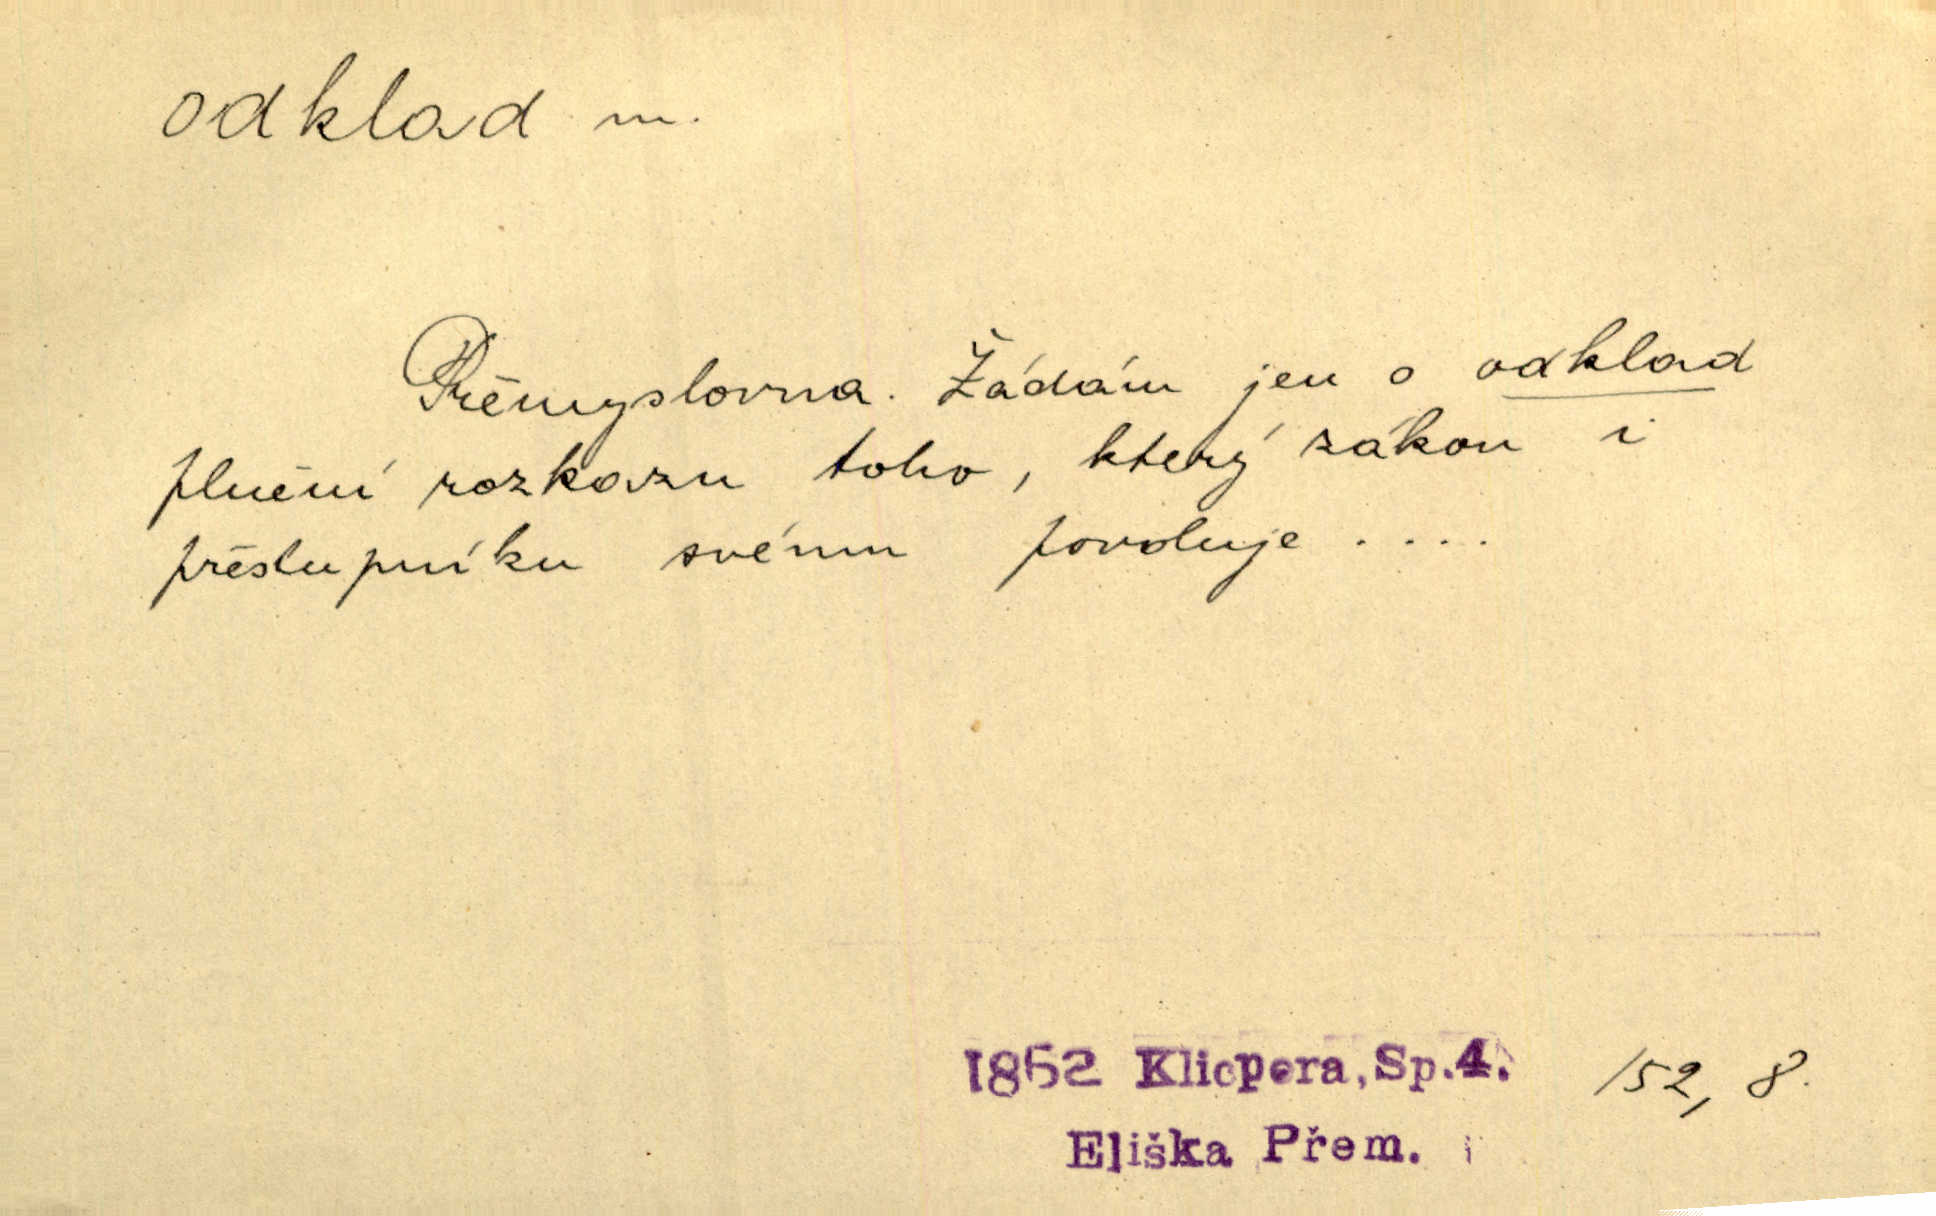 odklad m.
Přemyslovna. Žádám jen o odklad
plnění rozkazu toho, který zákon i
přéstupníku svému povoluje ....
1862 Klicpera, Sp.4. 152, 8.
Eliška Přem.